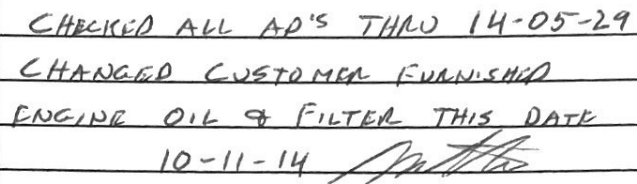 CHECKED ALL AD'S THRU 14-05-29
CHANGED CUSTOMER FURNISHED
ENGINE OIL & FILTER THIS DATE
10-11-14